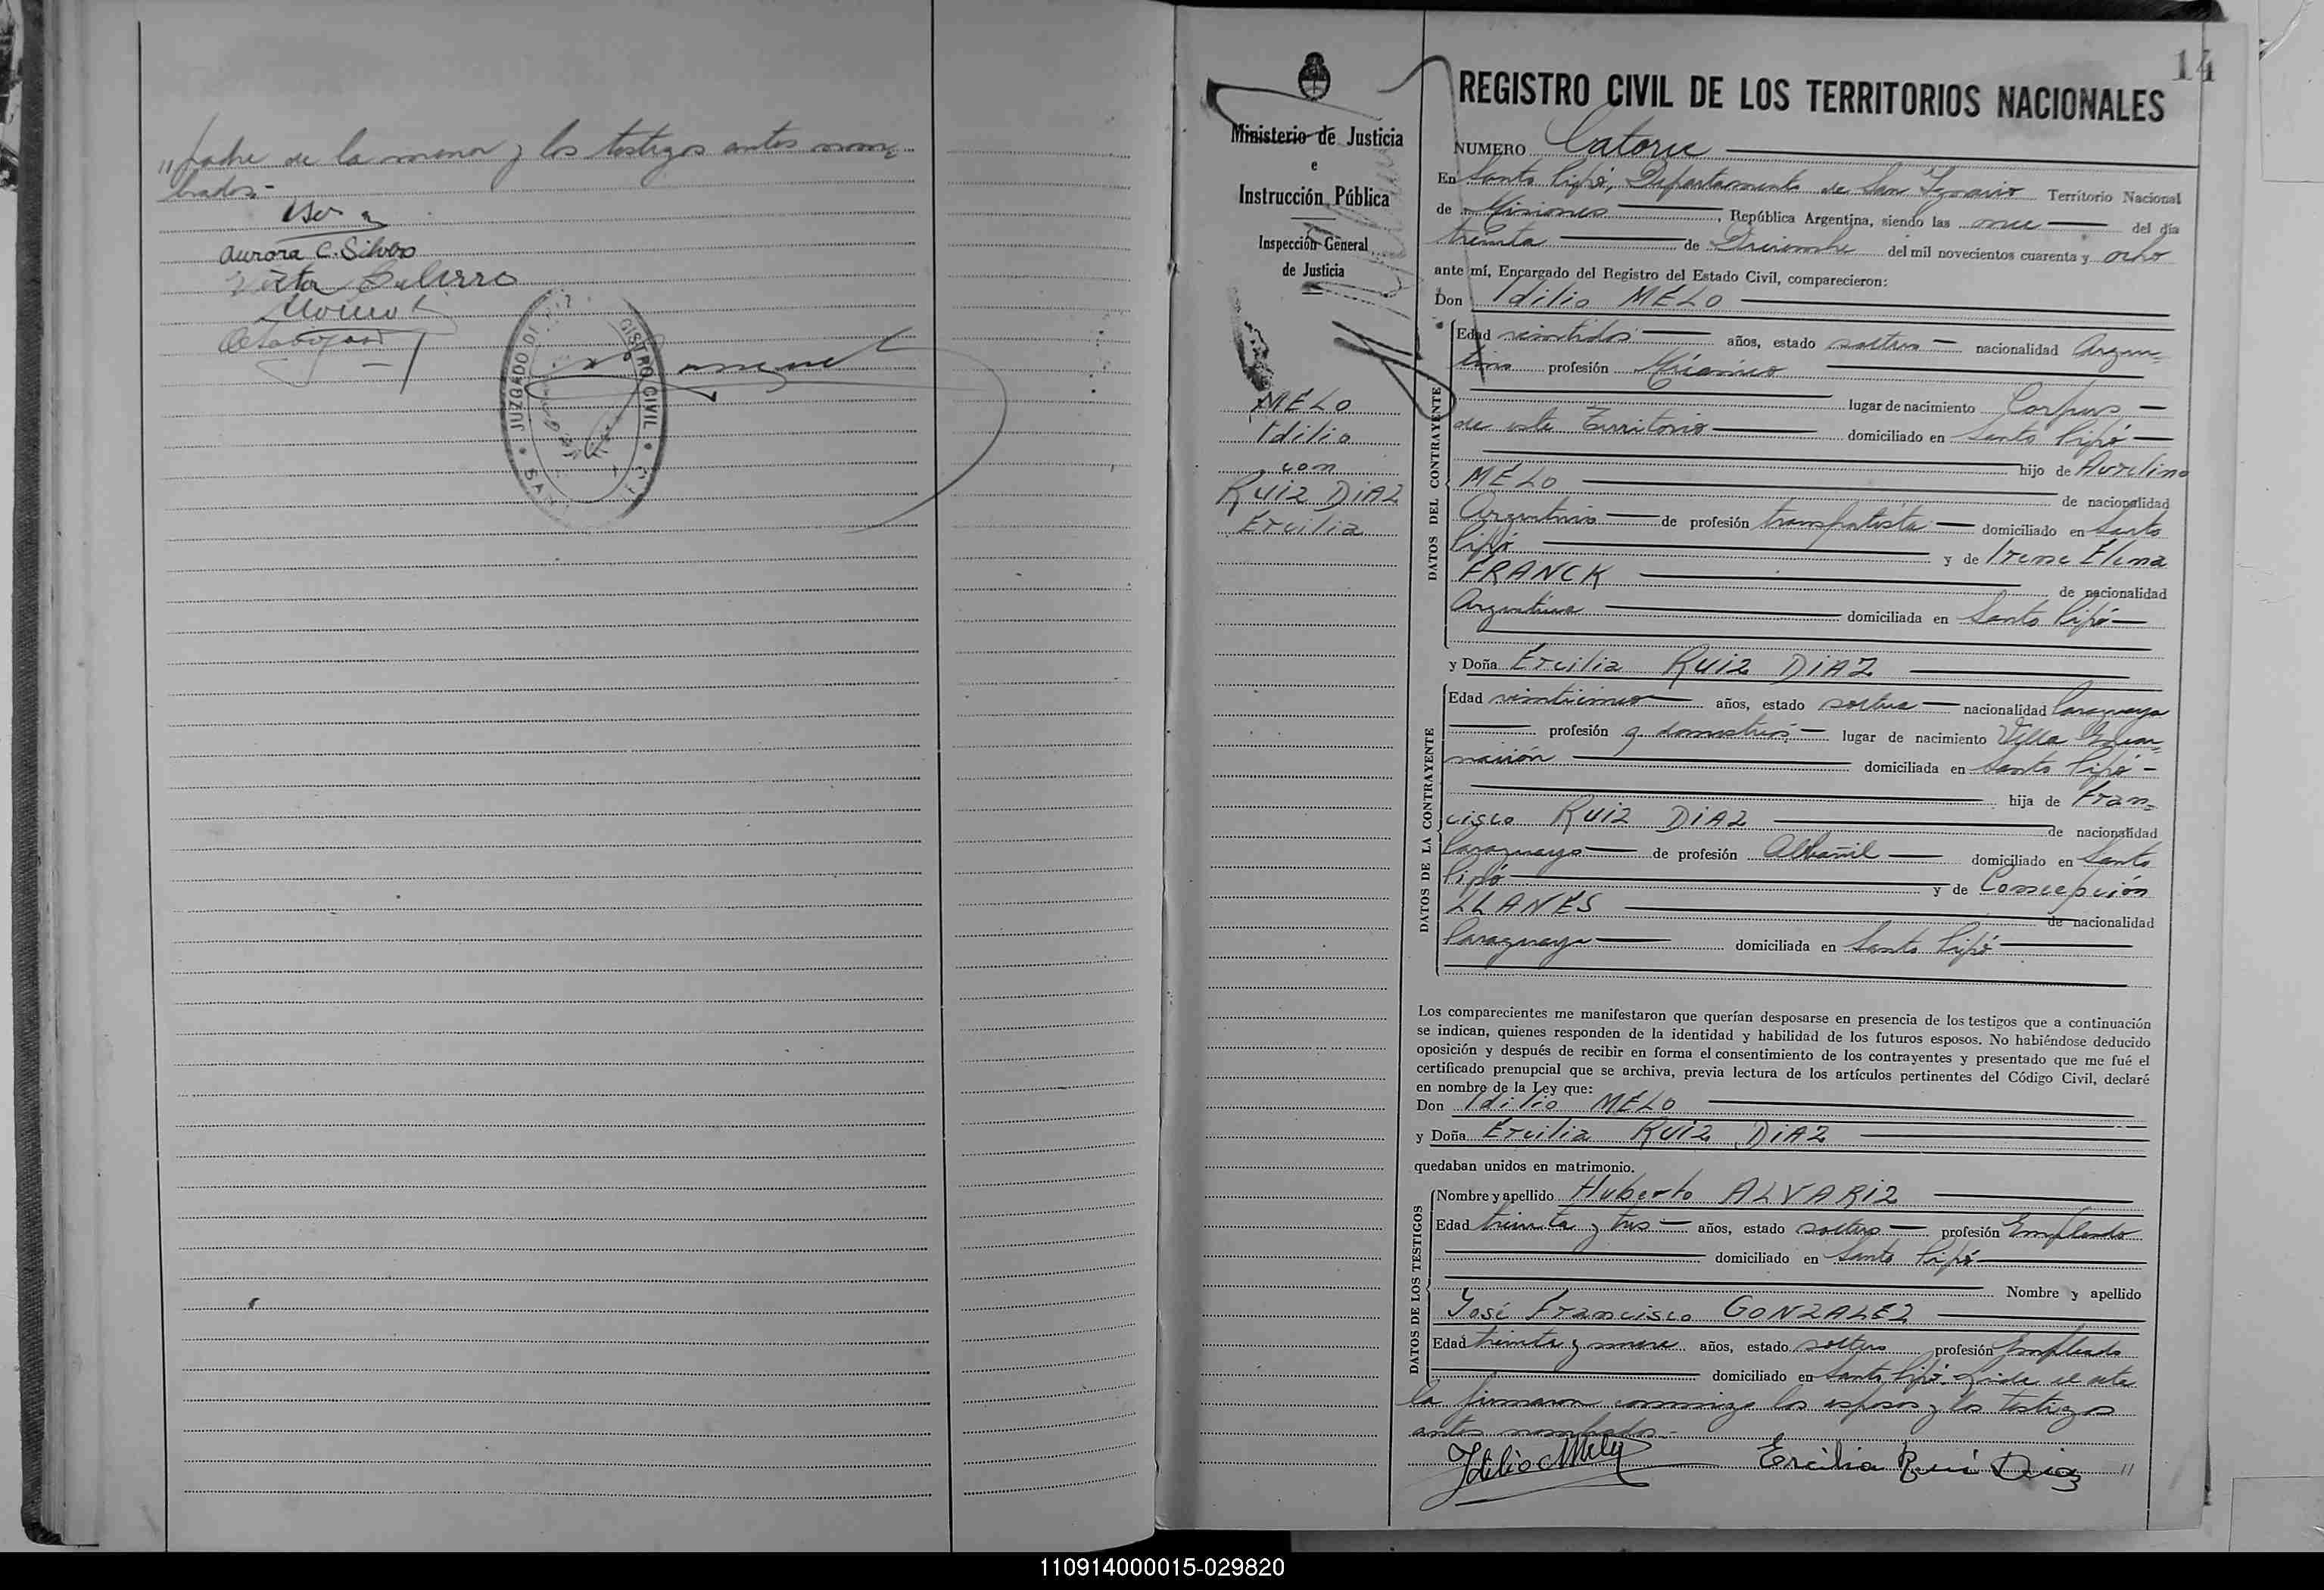 " padre de la menor y los testigos antes nom=
brados.-
Aurora C. Silva
JUZGADO DE
REGISTRO CIVIL
14
Ministerio de Justicia
e
Instrucción Pública
Inspección General
de Justicia
MELO
Idilio
con
RUIZ DIAZ
Ercilia
REGISTRO CIVIL DE LOS TERRITORIOS NACIONALES
NUMERO Catorce
En Santo Pipó, Departamento de San Ignacio Territorio Nacional
de Misiones, República Argentina, siendo las once del día
treinta de Diciembre del mil novecientos cuarenta y ocho
ante mí, Encargado del Registro del Estado Civil, comparecieron:
Don Idilio MELO
DATOS DEL CONTRAYENTE
Edad veintidos años, estado soltero nacionalidad Argen=
tino profesión Mecánico
lugar de nacimiento Corpus
de este Territorio domiciliado en Santo Pipó
hijo de Avelino
MELO de nacionalidad
Argentino de profesión transportista domiciliado en Santo
Pipó y de Irene Elena
FRANCK de nacionalidad
Argentina domiciliada en Santo Pipó
y Doña Ercilia RUIZ DIAZ
DATOS DE LA CONTRAYENTE
Edad veinticinco años, estado soltera nacionalidad Paraguaya
profesión q. domésticos lugar de nacimiento Villa Encar=
nación domiciliada en Santo Pipó
hija de Fran=
cisco RUIZ DIAZ de nacionalidad
Paraguayo de profesión Albañil domiciliado en Santo
Pipó y de Concepción
LLANES de nacionalidad
Paraguaya domiciliada en Santo Pipó
Los comparecientes me manifestaron que querían desposarse en presencia de los testigos que a continuación
se indican, quienes responden de la identidad y habilidad de los futuros esposos. No habiéndose deducido
oposición y después de recibir en forma el consentimiento de los contrayentes y presentado que me fué el
certificado prenupcial que se archiva, previa lectura de los artículos pertinentes del Código Civil, declaré
en nombre de la Ley que:
Don Idilio MELO
y Doña Ercilia RUIZ DIAZ
quedaban unidos en matrimonio.
DATOS DE LOS TESTIGOS
Nombre y apellido Huberto ALVARIZ
Edad treinta y tres años, estado soltero profesión Empleado
domiciliado en Santo Pipó
Nombre y apellido
José Francisco GONZALEZ
Edad treinta y nueve años, estado soltero profesión Empleado
domiciliado en Santo Pipó. Leida el acta
la firmaron conmigo los esposos y los testigos
antes nombrados.-
Idilio Melo Ercilia Rui Diaz "
110914000015-029820